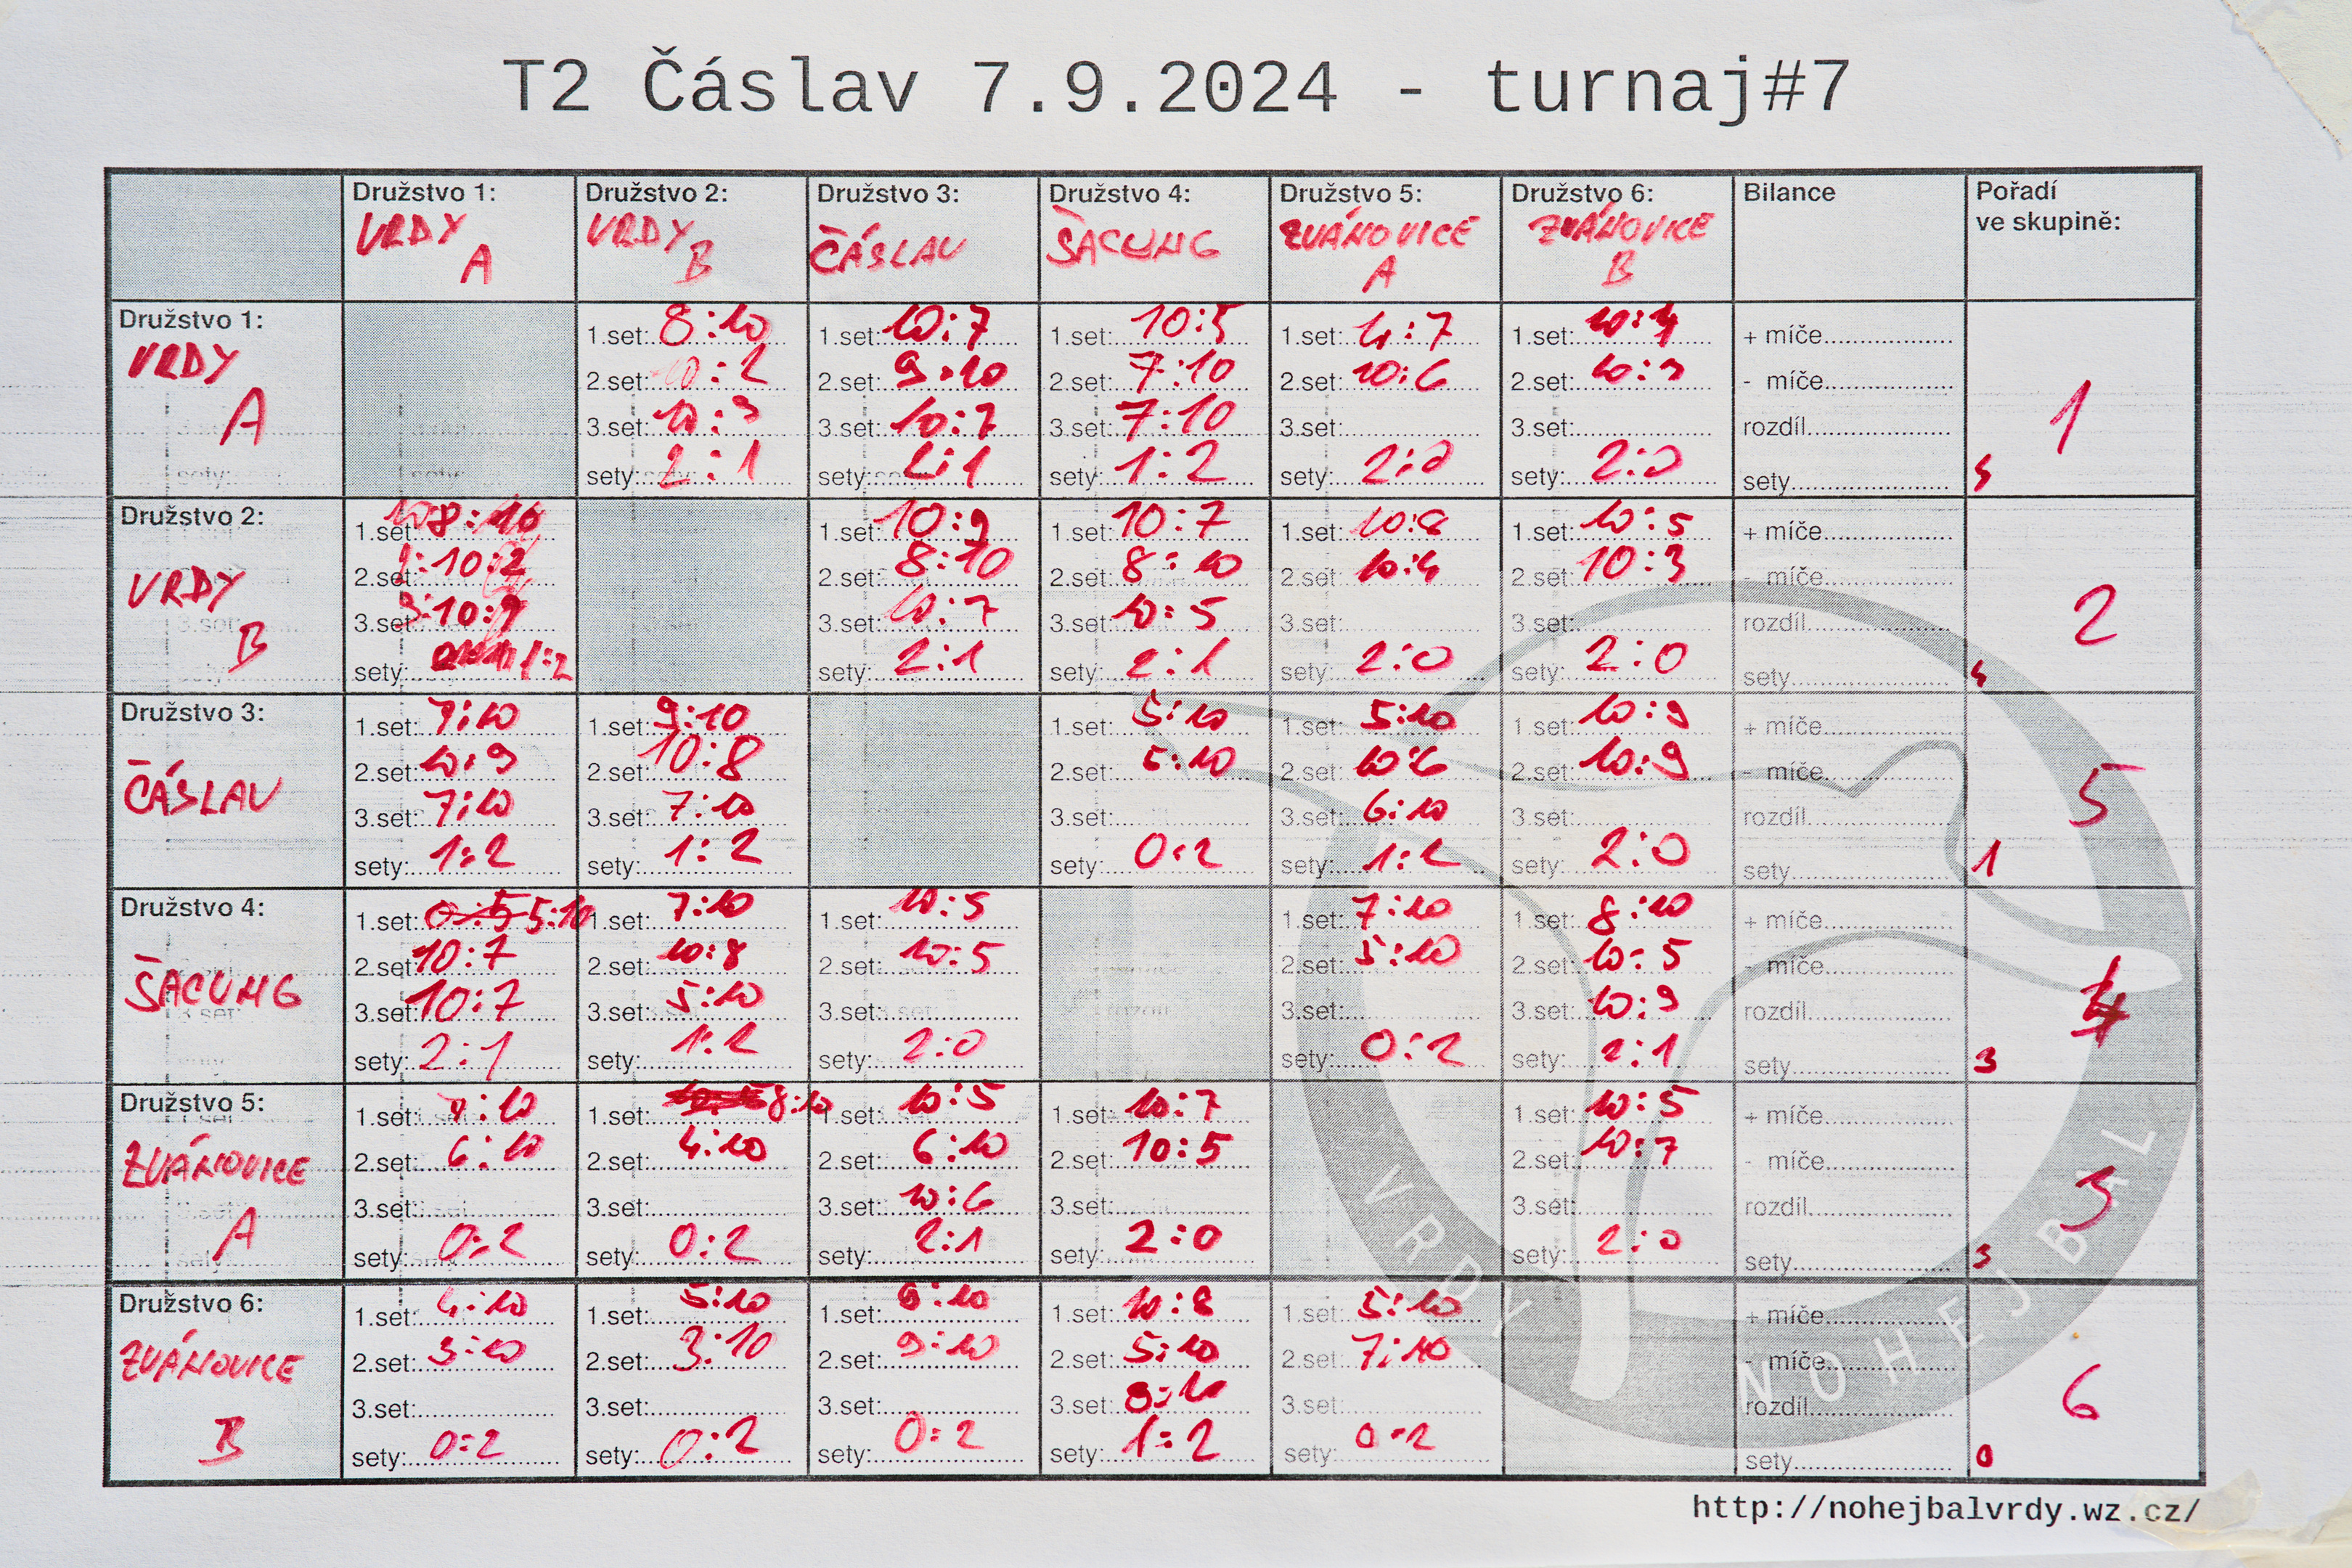 T2 Čáslav 7.9.2024 - turnaj#7
Družstvo 1: Družstvo 2: Družstvo 3: Družstvo 4: Družstvo 5: Družstvo 6: Bilance Pořadí
ve skupině:
VRDY A VRDY B ČÁSLAV ŠACUNG ZVÁNOVICE A ZVÁNOVICE B
Družstvo 1:
VRDY
A
1.set: 8:10 1.set: 10:7 1.set: 10:5 1.set: 4:7 1.set: 10:4 + míče
2.set: 10:2 2.set: 9:10 2.set: 7:10 2.set: 10:6 2.set: 10:3 - míče
3.set: 10:9 3.set: 10:7 3.set: 7:10 3.set: 3.set: rozdíl 1
sety: 2:1 sety: 2:1 sety: 1:2 sety: 2:0 sety: 2:0 sety
Družstvo 2:
VRDY
B
1.set: 8:10 1.set: 10:9 1.set: 10:7 1.set: 10:8 1.set: 10:5 + míče
2.set: 10:2 2.set: 8:10 2.set: 8:10 2.set: 10:4 2.set: 10:3 - míče
3.set: 10:9 3.set: 10:7 3.set: 10:5 3.set: 3.set: rozdíl 2
sety: 1:2 sety: 2:1 sety: 2:1 sety: 2:0 sety: 2:0 sety 4
Družstvo 3:
ČÁSLAV
1.set: 7:10 1.set: 9:10 1.set: 5:10 1.set: 5:10 1.set: 10:9 + míče
2.set: 10:9 2.set: 10:8 2.set: 5:10 2.set: 10:6 2.set: 10:9 - míče
3.set: 7:10 3.set: 7:10 3.set: 3.set: 6:10 3.set: rozdíl 5
sety: 1:2 sety: 1:2 sety: 0:2 sety: 1:2 sety: 2:0 sety 1
Družstvo 4:
ŠACUNG
1.set: 5:10 1.set: 7:10 1.set: 10:5 1.set: 7:10 1.set: 8:10 + míče
2.set: 10:7 2.set: 10:8 2.set: 10:5 2.set: 5:10 2.set: 10:5 - míče
3.set: 10:7 3.set: 5:10 3.set: 3.set: 3.set: 10:9 rozdíl 4
sety: 2:1 sety: 1:2 sety: 2:0 sety: 0:2 sety: 2:1 sety 3
Družstvo 5:
ZVÁNOVICE
A
1.set: 7:10 1.set: 8:10 1.set: 10:5 1.set: 10:7 1.set: 10:5 + míče
2.set: 6:10 2.set: 4:10 2.set: 6:10 2.set: 10:5 2.set: 10:7 - míče
3.set: 3.set: 3.set: 10:6 3.set: 3.set: rozdíl 3
sety: 0:2 sety: 0:2 sety: 2:1 sety: 2:0 sety: 2:0 sety 3
Družstvo 6:
ZVÁNOVICE
B
1.set: 4:10 1.set: 5:10 1.set: 9:10 1.set: 10:8 1.set: 5:10 + míče
2.set: 3:10 2.set: 3:10 2.set: 9:10 2.set: 5:10 2.set: 7:10 - míče
3.set: 3.set: 3.set: 3.set: 9:10 3.set: rozdíl 6
sety: 0:2 sety: 0:2 sety: 0:2 sety: 1:2 sety: 0:2 sety 0
VRDY NOHEJBAL
http://nohejbalvrdy.wz.cz/